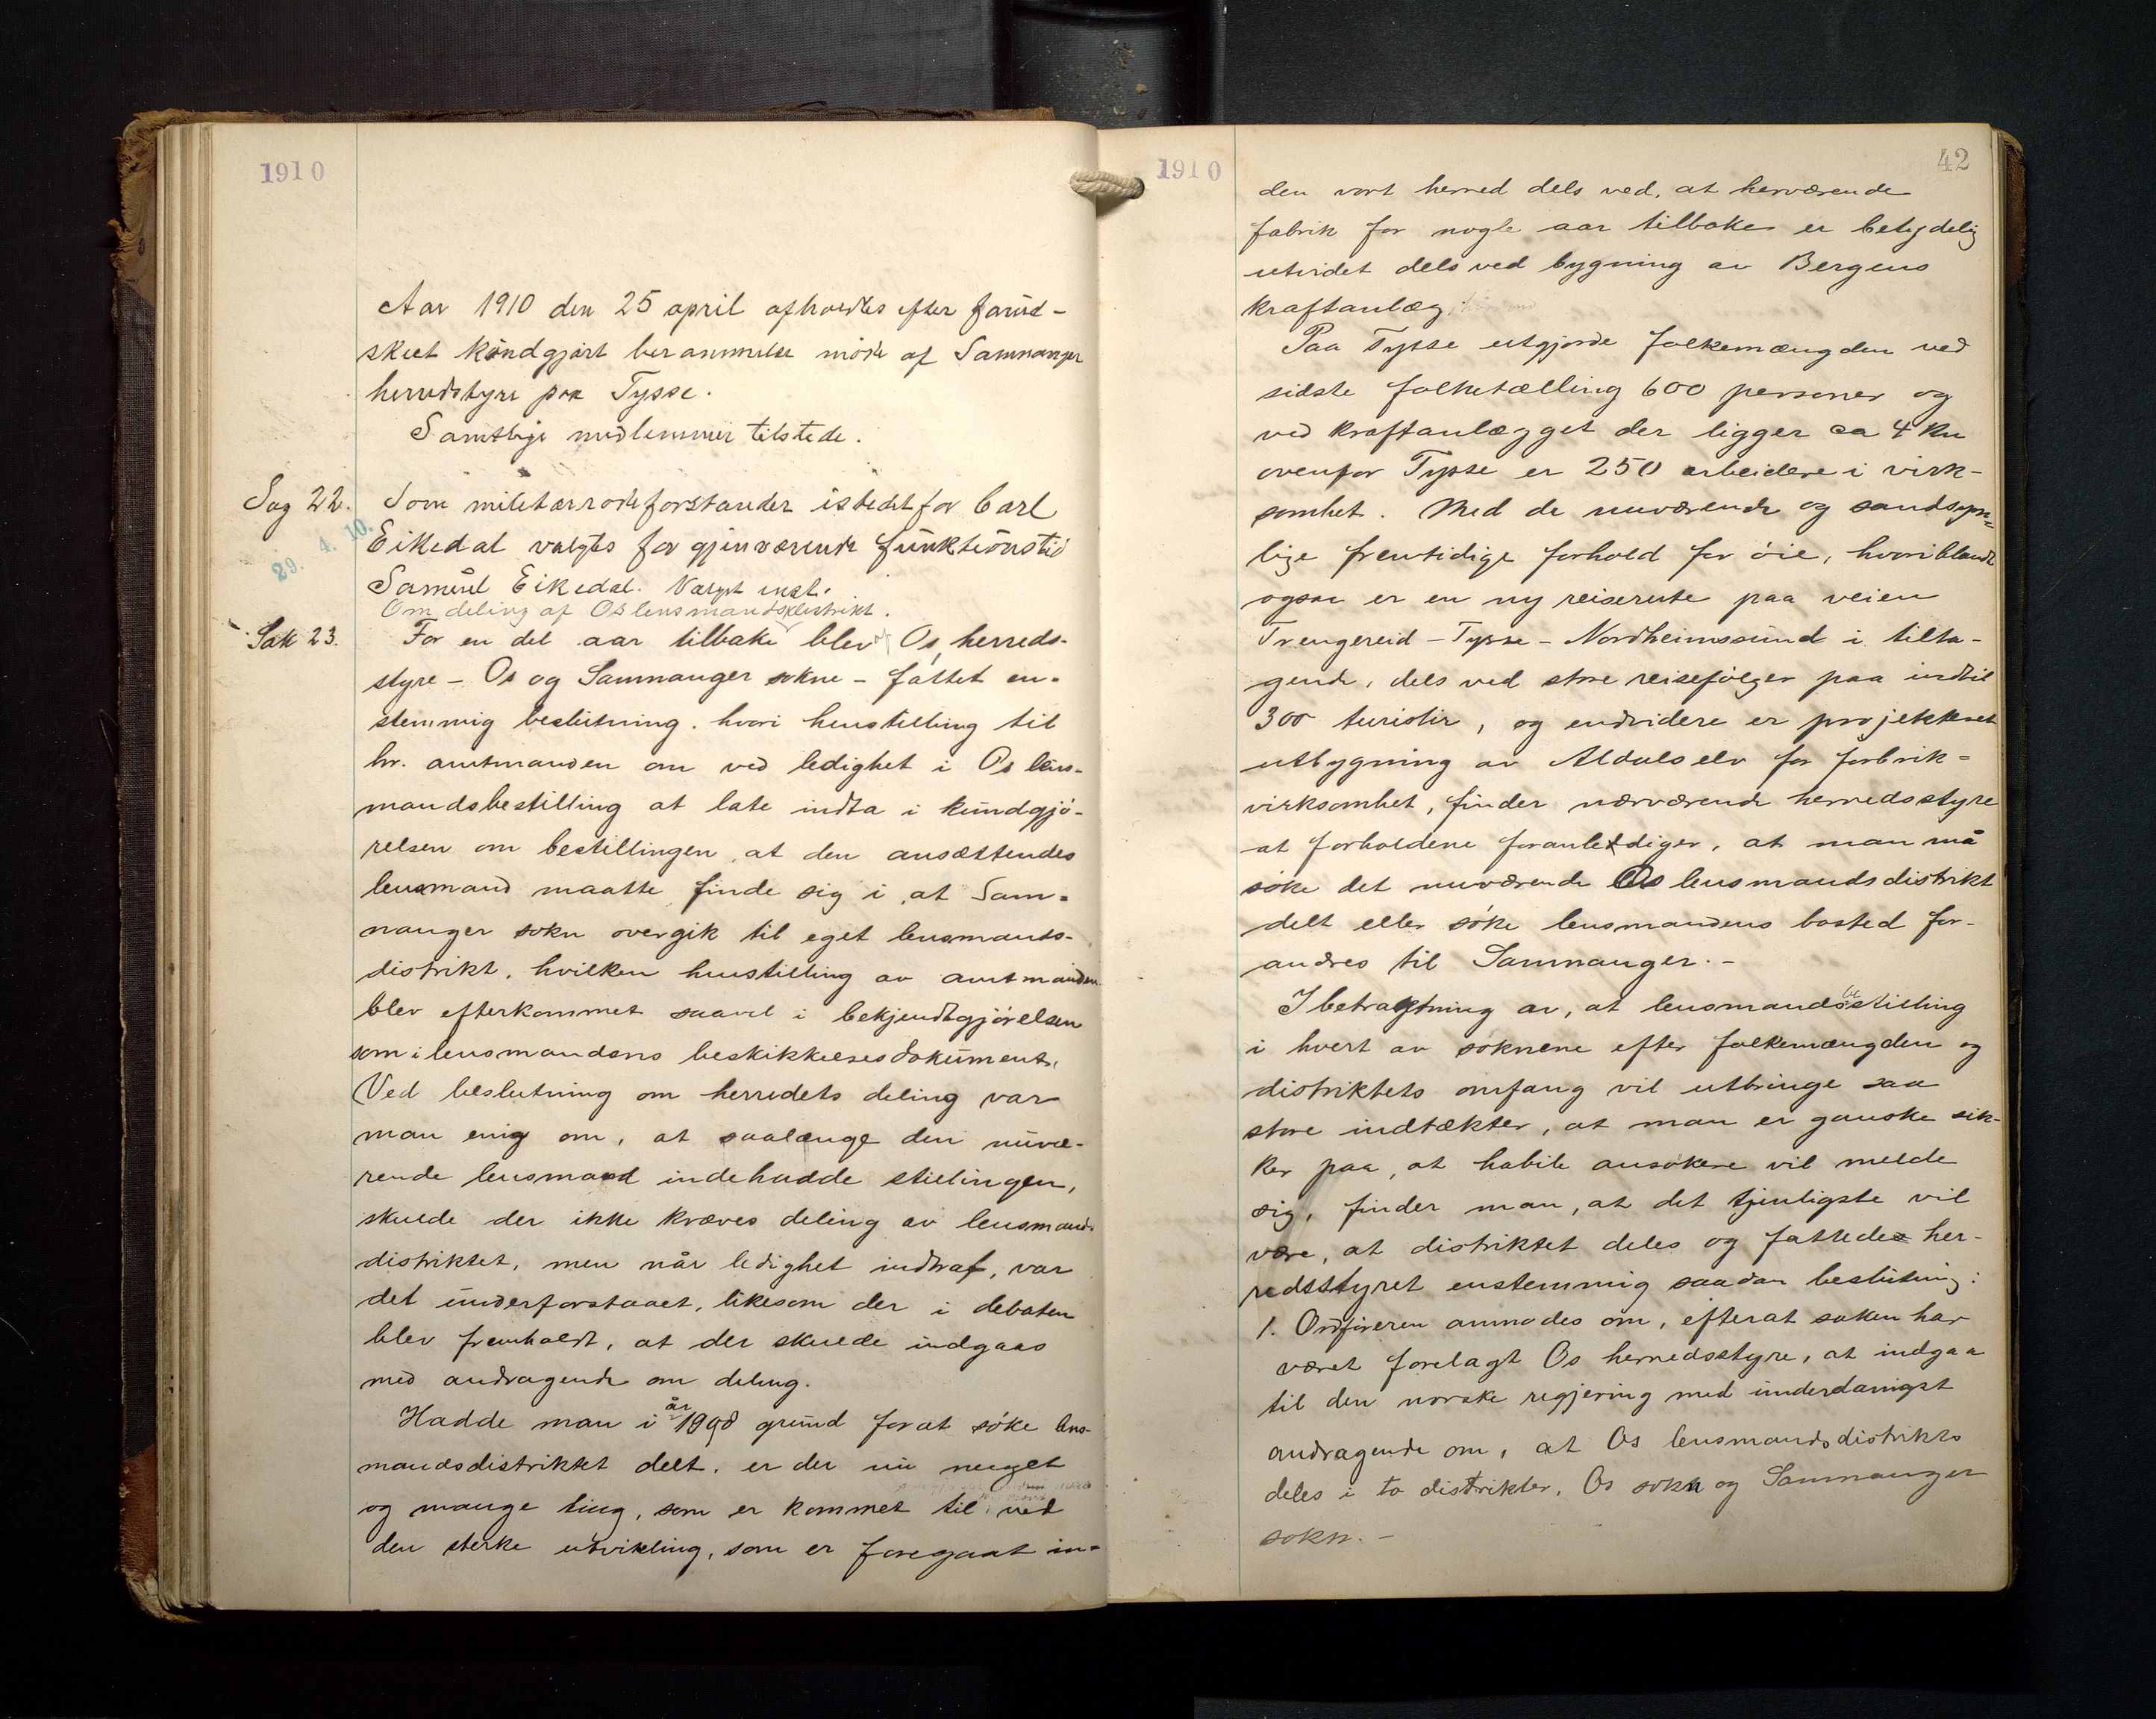 1910
Aar 1910 den 25 april afholdtes efter forud-
skeet kundgjørt berammelse møde af Samnanger
herredstyre paa Tysse.
Samtlige medlemmer tilstede.
Sag 22. Som militærrodeforstander istedetfor Carl
29. 4. 10.
Eikedal valgtes for gjenværende funktionstid
Samuel Eikedal. Valgt enst.
Om deling af Os lensmandsdistrikt.
Sak 23. For en del aar tilbake blev af Os herreds-
styre - Os og Samnanger sokne - fattet en-
stemmig beslutning, hvori henstilling til
hr. amtmanden om ved ledighet i Os lens-
mandsbestilling at late indta i kundgjø-
relsen om bestillingen, at den ansættendes
lensmand maatte finde sig i, at Sam-
nanger sokn overgik til eget lensmands-
distrikt, hvilken henstilling av amtmanden
blev efterkommet saavel i bekjendtgjørelsen
som i lensmandens beskikkelsesdokument.
Ved beslutning om herredets deling var
man enig om, at saalænge den nuvæ-
rende lensmand indehadde stillingen,
skulde der ikke kræves deling av lensmands
distriktet, men når ledighet indtraf, var
det underforstaaet, likesom der i debaten
blev fremholdt, at der skulde indgaaes
med andragende om deling.
Hadde man i år 1898 grund for at søke lens-
mandsdistriktet delt, er der nu meget
og mange ting, som er kommet til ved
den sterke utvikling, som er foregaat in-
1910
42
den vort herred dels ved, at herværende
fabrik for nogle aar tilbake er betydelig
utvidet dels ved bygning av Bergens
kraftanlæg.
Paa Tysse utgjorde folkemængden ved
sidste folketælling 600 personer og
ved kraftanlægget der ligger ca 4 km
ovenfor Tysse er 250 arbeidere i virk-
somhet. Med de nuværende og sandsyn-
lige fremtidige forhold for øie, hvoriblandt
ogsaa er en ny reiserute paa veien
Trengereid - Tysse - Nordheimssund i tilta-
gende, dels ved store reisefølger paa indtil
300 turister, og endvidere er projekteret
utbygning av Aldalselv for fabrik-
virksomhet, finder nærværende herredsstyre
at forholdene foranlediger, at man må
søke det nuværende Os lensmandsdistrikt
delt eller søke lensmandens bosted for-
andres til Samnanger.-
I betragtning av, at lensmandsbestilling
i hvert av soknene efter folkemængden og
distriktets omfang vil utbringe saa
store indtækter, at man er ganske sik-
ker paa, at habile ansøkere vil melde
sig, finder man, at det tjenligste vil
være, at distriktet deles og fattedes her-
redsstyret enstemmig saadan beslutning:
1. Ordføreren anmodes om, efterat saken har
været forelagt Os herredsstyre, at indgaa
til den norske regjering med underdanigst
andragende om, at Os lensmandsdistrikts
deles i to distrikter, Os sokn og Samnanger
sokn.-